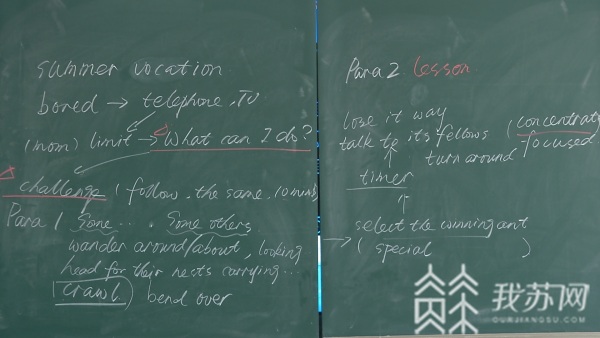 summer vocation
bored → telephone, TV
(mom) limit → What can I do?
challenge (follow, the same, 10 mins)
Para 1 Some ... . Some others
wander around/about, looking
head for their nests carrying...
crawl bend over
Para 2 lesson
lose it way
talk to its fellows (concentrate
turn around focused
timer
select the cunning ant
(special )
我苏网
OURJIANGSU.COM